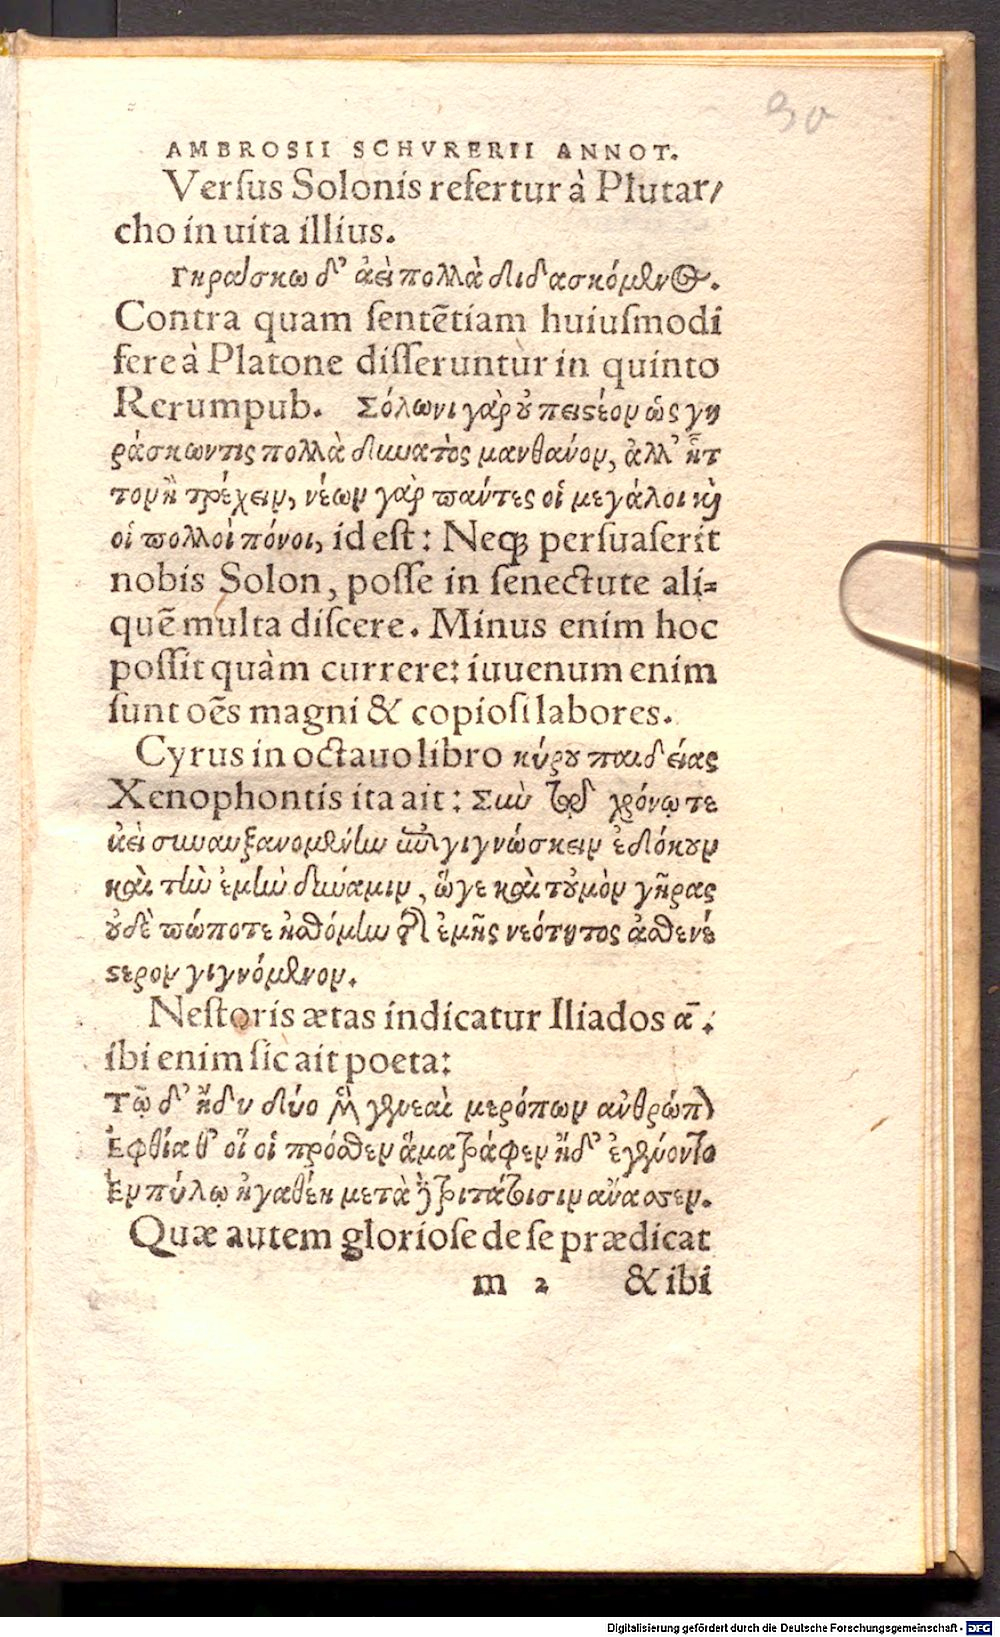 90
AMBROSII SCHVRERII ANNOT.
Versus Solonis refertur à Plutar/
cho in uita illius.
Γηράσκω δ' ἀεὶ πολλὰ διδασκόμενος.
Contra quam sentẽtiam huiusmodi
fere à Platone disseruntur in quinto
Rerumpub. Σόλωνι γὰρ οὐ πειστέον ὡς γη
ράσκων τις πολλὰ δυνατὸς μανθάνειν, ἀλλ' ἧτ
τον ἢ τρέχειν, νέων γὰρ πάντες οἱ μεγάλοι καὶ
οἱ πολλοὶ πόνοι, id est: Neq; persuaserit
nobis Solon, posse in senectute ali=
quẽ multa discere. Minus enim hoc
possit quàm currere: iuuenum enim
sunt oẽs magni & copiosi labores.
Cyrus in octauo libro κύρου παιδείας
Xenophontis ita ait: Σὺν τῷ δὲ χρόνῳ τε
ἀεὶ συναυξανομένην ἐπιγιγνώσκειν ἐδόκουν
καὶ τὴν ἐμὴν δύναμιν, ὥστε καὶ τοὐμὸν γῆρας
οὐδὲ πώποτε ᾐσθόμην τῆς ἐμῆς νεότητος ἀσθενέ
στερον γιγνόμενον.
Nestoris ætas indicatur Iliados α.
ibi enim sic ait poeta:
Τῷ δ' ἤδη δύο μὲν γενεαὶ μερόπων ἀνθρώπων
Ἐφθίαθ' οἵ οἱ πρόσθεν ἅμα τράφεν ἠδ' ἐγένοντο
Ἐν πύλῳ ἠγαθέῃ μετὰ δὲ τριτάτοισιν ἄνασσεν.
Quæ autem gloriose de se prædicat
m 2 & ibi
Digitalisierung gefördert durch die Deutsche Forschungsgemeinschaft - DFG